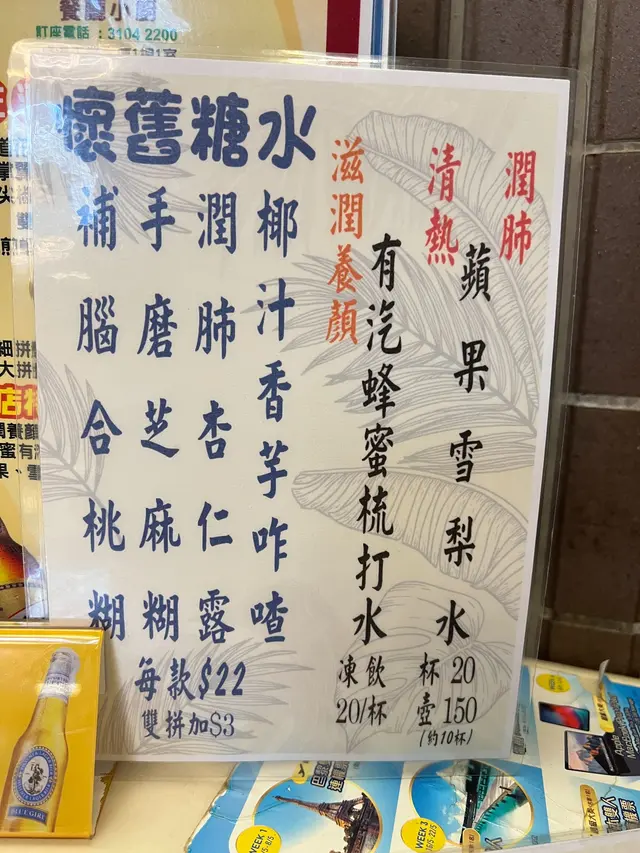 餐廳小廚
訂座電話：3104 2200
懷舊糖水
潤肺
清熱
蘋果雪梨水
杯 20
壺 150
(約10杯)
滋潤養顏
有汽蜂蜜梳打水
凍飲
20/杯
椰汁香芋咋喳
潤肺杏仁露
手磨芝麻糊
補腦合桃糊
每款$22
雙拼加$3
BLUE GIRL
WEEK 1
WEEK 3